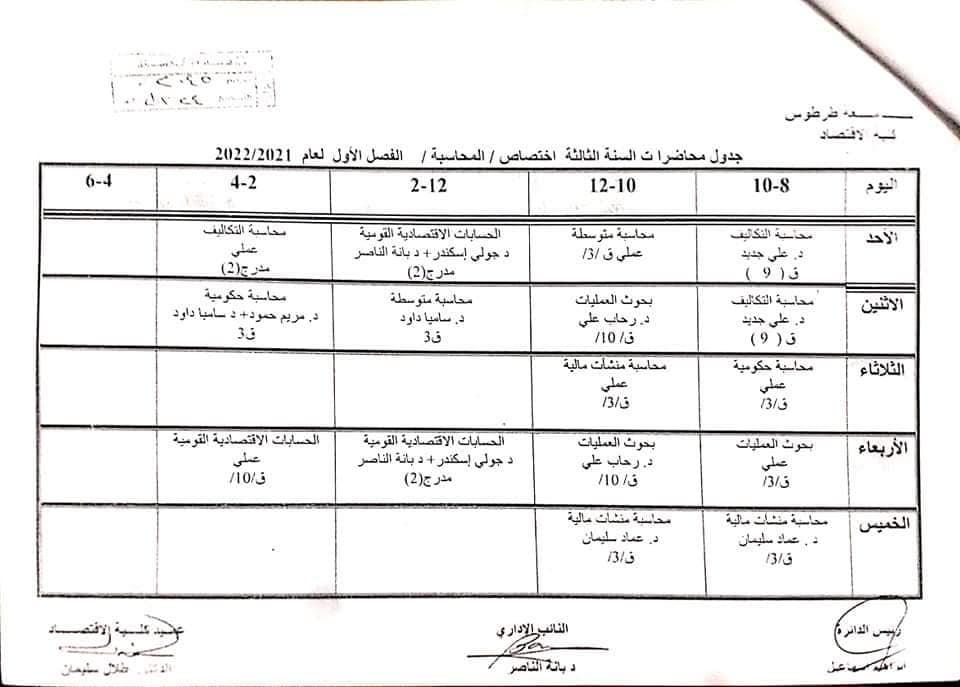 طرطوس
الاقتصاد
جدول محاضرات السنة الثالثة اختصاص / المحاسبة / الفصل الأول لعام 2022/2021
اليوم 10-8 12-10 2-12 4-2 6-4
الأحد
محاسبة التكاليف
د. علي جديد
ق ( 9 )
محاسبة متوسطة
عملي ق /3/
الحسابات الاقتصادية القومية
د جولي إسكندر + د بانة الناصر
مدرج(2)
محاسبة التكاليف
عملي
مدرج(2)
الاثنين
محاسبة التكاليف
د. علي جديد
ق ( 9 )
بحوث العمليات
د. رحاب علي
ق/ 10/
محاسبة متوسطة
د. ساميا داود
ق3
محاسبة حكومية
د. مريم حمود+ د ساميا داود
ق3
الثلاثاء
محاسبة حكومية
عملي
ق/3/
محاسبة منشآت مالية
عملي
ق/3/
الأربعاء
بحوث العمليات
عملي
ق/3/
بحوث العمليات
د. رحاب علي
ق/ 10/
الحسابات الاقتصادية القومية
د جولي إسكندر + د بانة الناصر
مدرج(2)
الحسابات الاقتصادية القومية
عملي
ق/10/
الخميس
محاسبة منشآت مالية
د. عماد سليمان
ق/3/
محاسبة منشآت مالية
د. عماد سليمان
ق/3/
رئيس الدائرة
النائب الاداري
د بانة الناصر
عميد كلية الاقتصاد
طلال سليمان